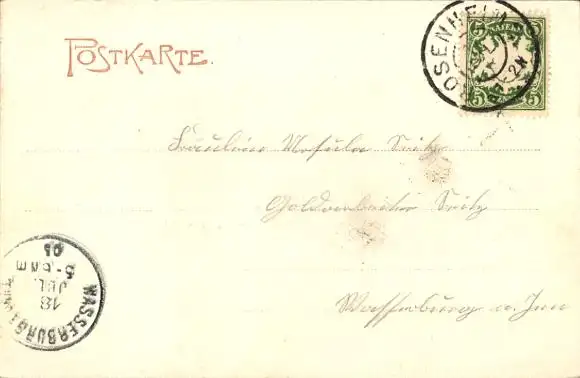 POSTKARTE.
ROSENHEIM
BAYERN
5 5
Fräulein Ursula Seitz
Goldarbeiter Seitz
Wasserburg a. Inn
WASSERBURG
18
JUL.
05